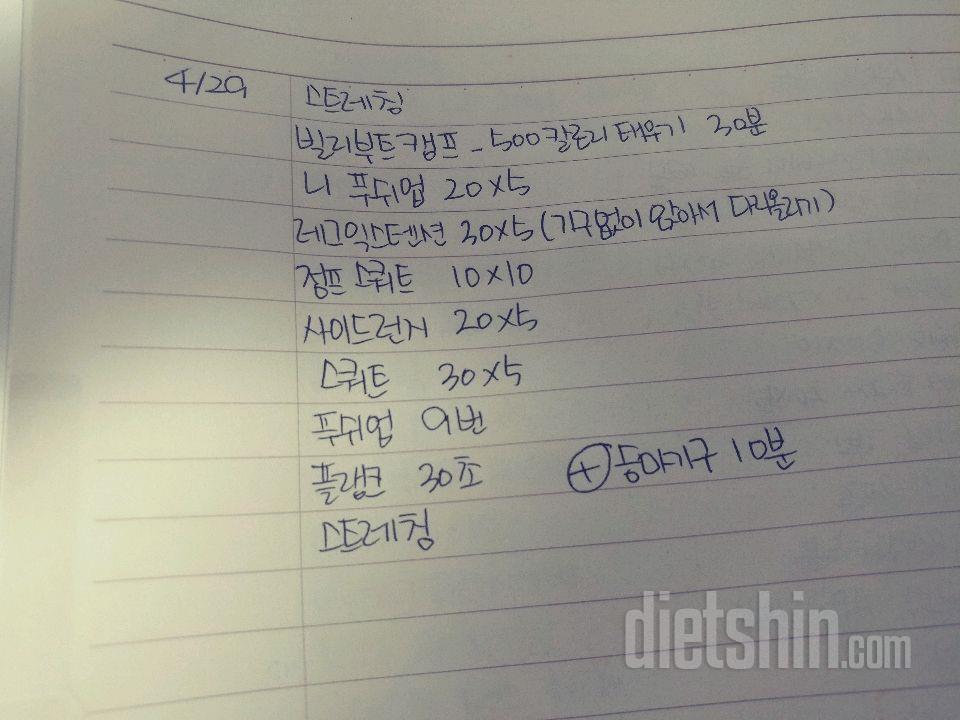 4/29 스트레칭
빌리부트캠프 - 500칼로리 태우기 30분
니 푸쉬업 20x5
레그익스텐션 30x5 (기구없이 앉아서 다리올리기)
점프 스쿼트 10x10
사이드런지 20x5
스쿼트 30x5
푸쉬업 9번
플랭크 30초 + 등야기구 10분
스트레칭
dietshin.com